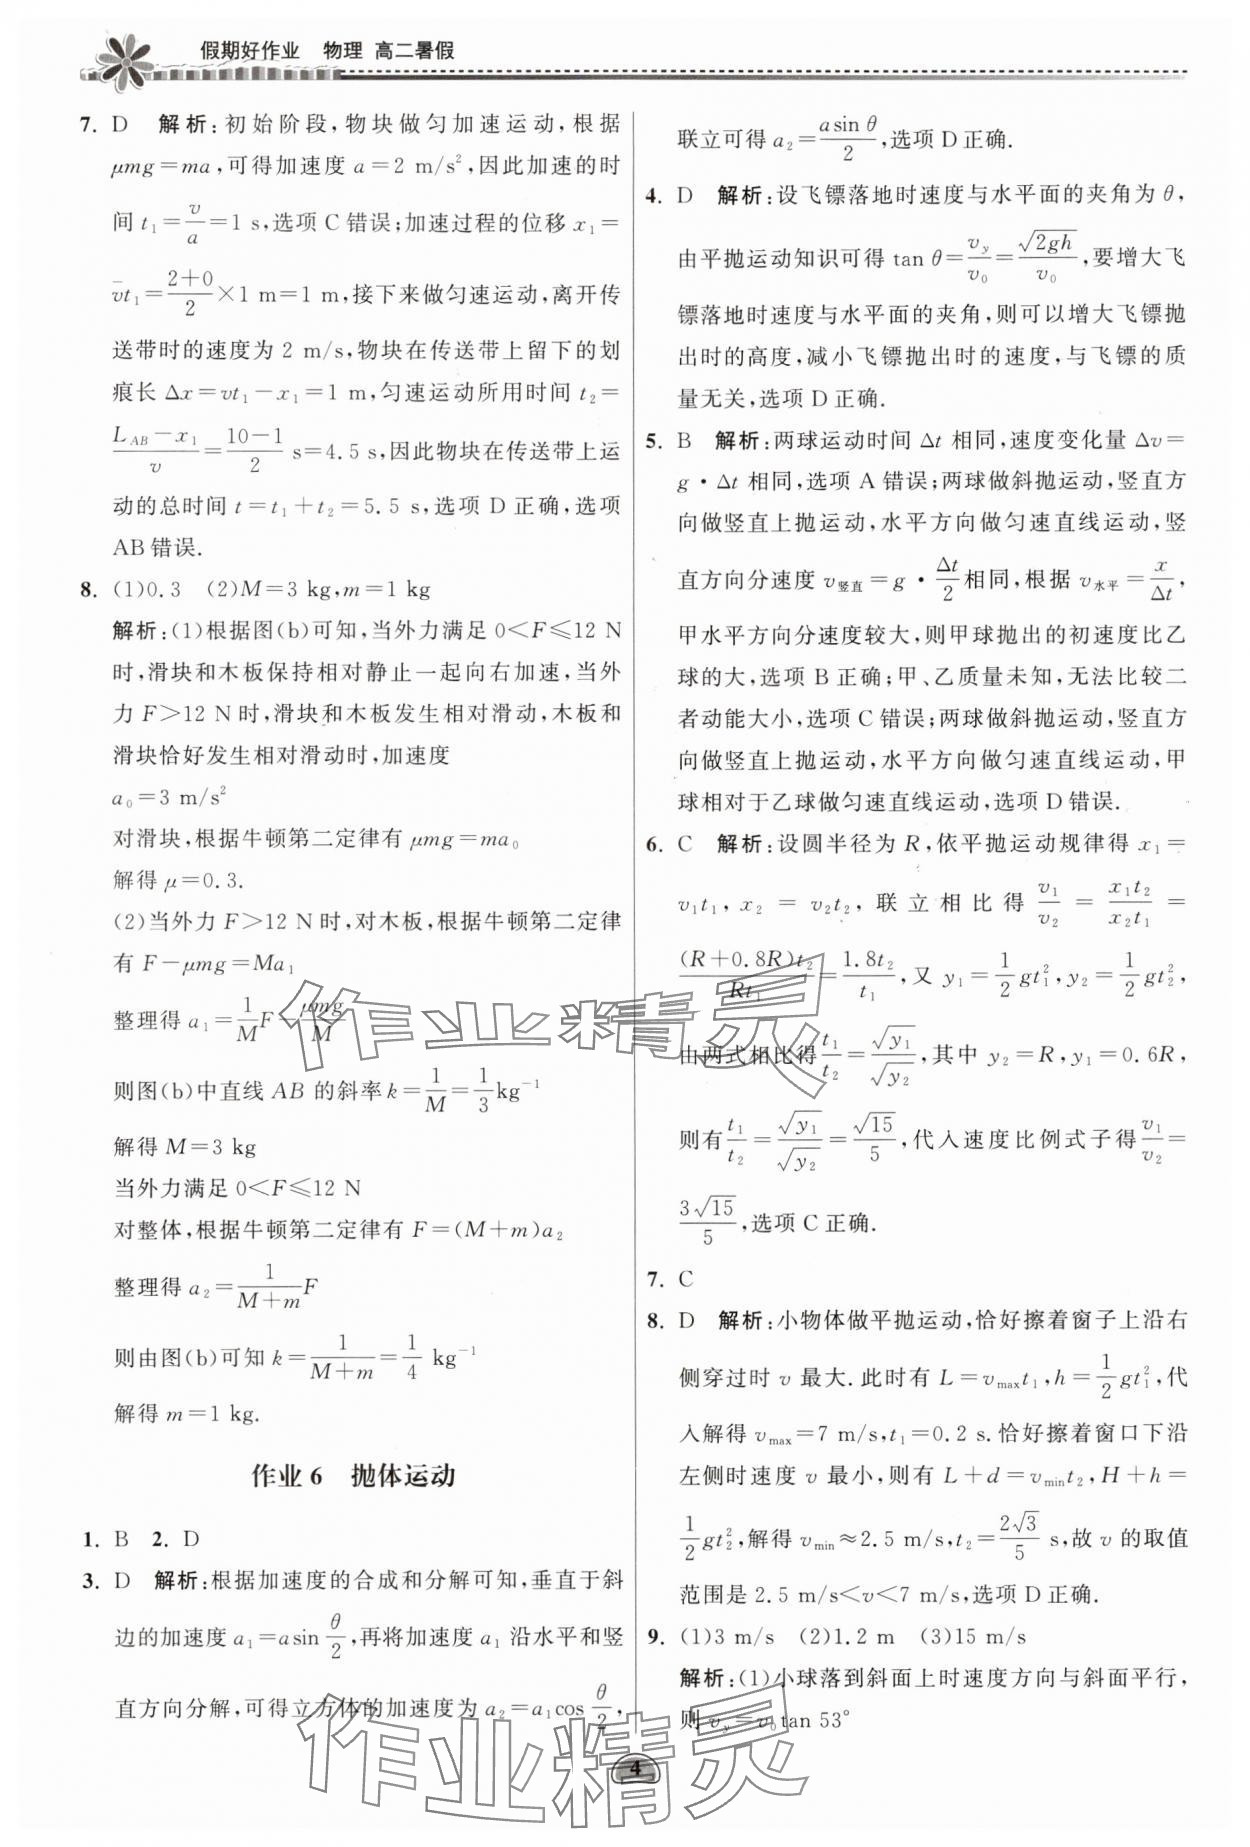 假期好作业 物理 高二暑假
7. D 解析:初始阶段,物块做匀加速运动,根据
μmg=ma,可得加速度 a=2 m/s²,因此加速的时
间 t₁=v/a=1 s,选项 C 错误;加速过程的位移 x₁=
v̄t₁=(2+0)/2×1 m=1 m,接下来做匀速运动,离开传
送带时的速度为 2 m/s,物块在传送带上留下的划
痕长 Δx=vt₁-x₁=1 m,匀速运动所用时间 t₂=
(L_AB-x₁)/v=(10-1)/2 s=4.5 s,因此物块在传送带上运
动的总时间 t=t₁+t₂=5.5 s,选项 D 正确,选项
AB 错误.
8. (1)0.3 (2)M=3 kg,m=1 kg
解析:(1)根据图(b)可知,当外力满足 0<F≤12 N
时,滑块和木板保持相对静止一起向右加速,当外
力 F>12 N 时,滑块和木板发生相对滑动,木板和
滑块恰好发生相对滑动时,加速度
a₀=3 m/s²
对滑块,根据牛顿第二定律有 μmg=ma₀
解得 μ=0.3.
(2)当外力 F>12 N 时,对木板,根据牛顿第二定律
有 F-μmg=Ma₁
整理得 a₁=1/M F-μmg/M
则图(b)中直线 AB 的斜率 k=1/M=1/3 kg⁻¹
解得 M=3 kg
当外力满足 0<F≤12 N
对整体,根据牛顿第二定律有 F=(M+m)a₂
整理得 a₂=1/(M+m) F
则由图(b)可知 k=1/(M+m)=1/4 kg⁻¹
解得 m=1 kg.
作业 6 抛体运动
1. B 2. D
3. D 解析:根据加速度的合成和分解可知,垂直于斜
边的加速度 a₁=asin θ/2,再将加速度 a₁ 沿水平和竖
直方向分解,可得立方体的加速度为 a₂=a₁cos θ/2,
联立可得 a₂=asin θ/2,选项 D 正确.
4. D 解析:设飞镖落地时速度与水平面的夹角为 θ,
由平抛运动知识可得 tan θ=v_y/v₀=√(2gh)/v₀,要增大飞
镖落地时速度与水平面的夹角,则可以增大飞镖抛
出时的高度,减小飞镖抛出时的速度,与飞镖的质
量无关,选项 D 正确.
5. B 解析:两球运动时间 Δt 相同,速度变化量 Δv=
g·Δt 相同,选项 A 错误;两球做斜抛运动,竖直方
向做竖直上抛运动,水平方向做匀速直线运动,竖
直方向分速度 v竖直=g·Δt/2 相同,根据 v水平=x/Δt,
甲水平方向分速度较大,则甲球抛出的初速度比乙
球的大,选项 B 正确;甲、乙质量未知,无法比较二
者动能大小,选项 C 错误;两球做斜抛运动,竖直方
向做竖直上抛运动,水平方向做匀速直线运动,甲
球相对于乙球做匀速直线运动,选项 D 错误.
6. C 解析:设圆半径为 R,依平抛运动规律得 x₁=
v₁t₁, x₂=v₂t₂,联立相比得 v₁/v₂=x₁t₂/x₂t₁=
(R+0.8R)t₂/Rt₁=1.8t₂/t₁,又 y₁=1/2 gt₁²,y₂=1/2 gt₂²,
由两式相比得 t₁/t₂=√y₁/√y₂,其中 y₂=R,y₁=0.6R,
则有 t₁/t₂=√y₁/√y₂=√15/5,代入速度比例式子得 v₁/v₂=
3√15/5,选项 C 正确.
7. C
8. D 解析:小物体做平抛运动,恰好擦着窗子上沿右
侧穿过时 v 最大. 此时有 L=v_max t₁,h=1/2 gt₁²,代
入解得 v_max=7 m/s,t₁=0.2 s.恰好擦着窗口下沿
左侧时速度 v 最小,则有 L+d=v_min t₂,H+h=
1/2 gt₂²,解得 v_min≈2.5 m/s,t₂=2√3/5 s,故 v 的取值
范围是 2.5 m/s<v<7 m/s,选项 D 正确.
9. (1)3 m/s (2)1.2 m (3)15 m/s
解析:(1)小球落到斜面上时速度方向与斜面平行,
则 v_y=v₀tan 53°
作业精灵
作业精灵
4